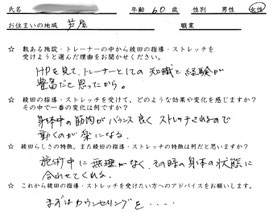 氏名 年齢 60 歳 性別 男性 女性
お住まいの地域 芦屋 職業
☆ 数ある施設・トレーナーの中から綾田の指導・ストレッチを
受けようと選んだ理由をお聞かせください。
HPを見て、トレーナーとしての知識と経験が
豊富だと思ったから。
☆ 綾田の指導・ストレッチを受けて、どのような効果や変化を感じますか?
その中で一番の変化は何ですか?
身体中の筋肉がバランス良くストレッチされるので
動くのが楽になる。
☆ 綾田らしさの特徴、また綾田の指導・ストレッチの特徴は何だと思いますか?
施術中に無理がなく、その時の身体の状態に
合わせてくれる。
☆ これから綾田の指導・ストレッチを受けたい方へのアドバイスをお願いします。
まずはカウンセリングを・・・・